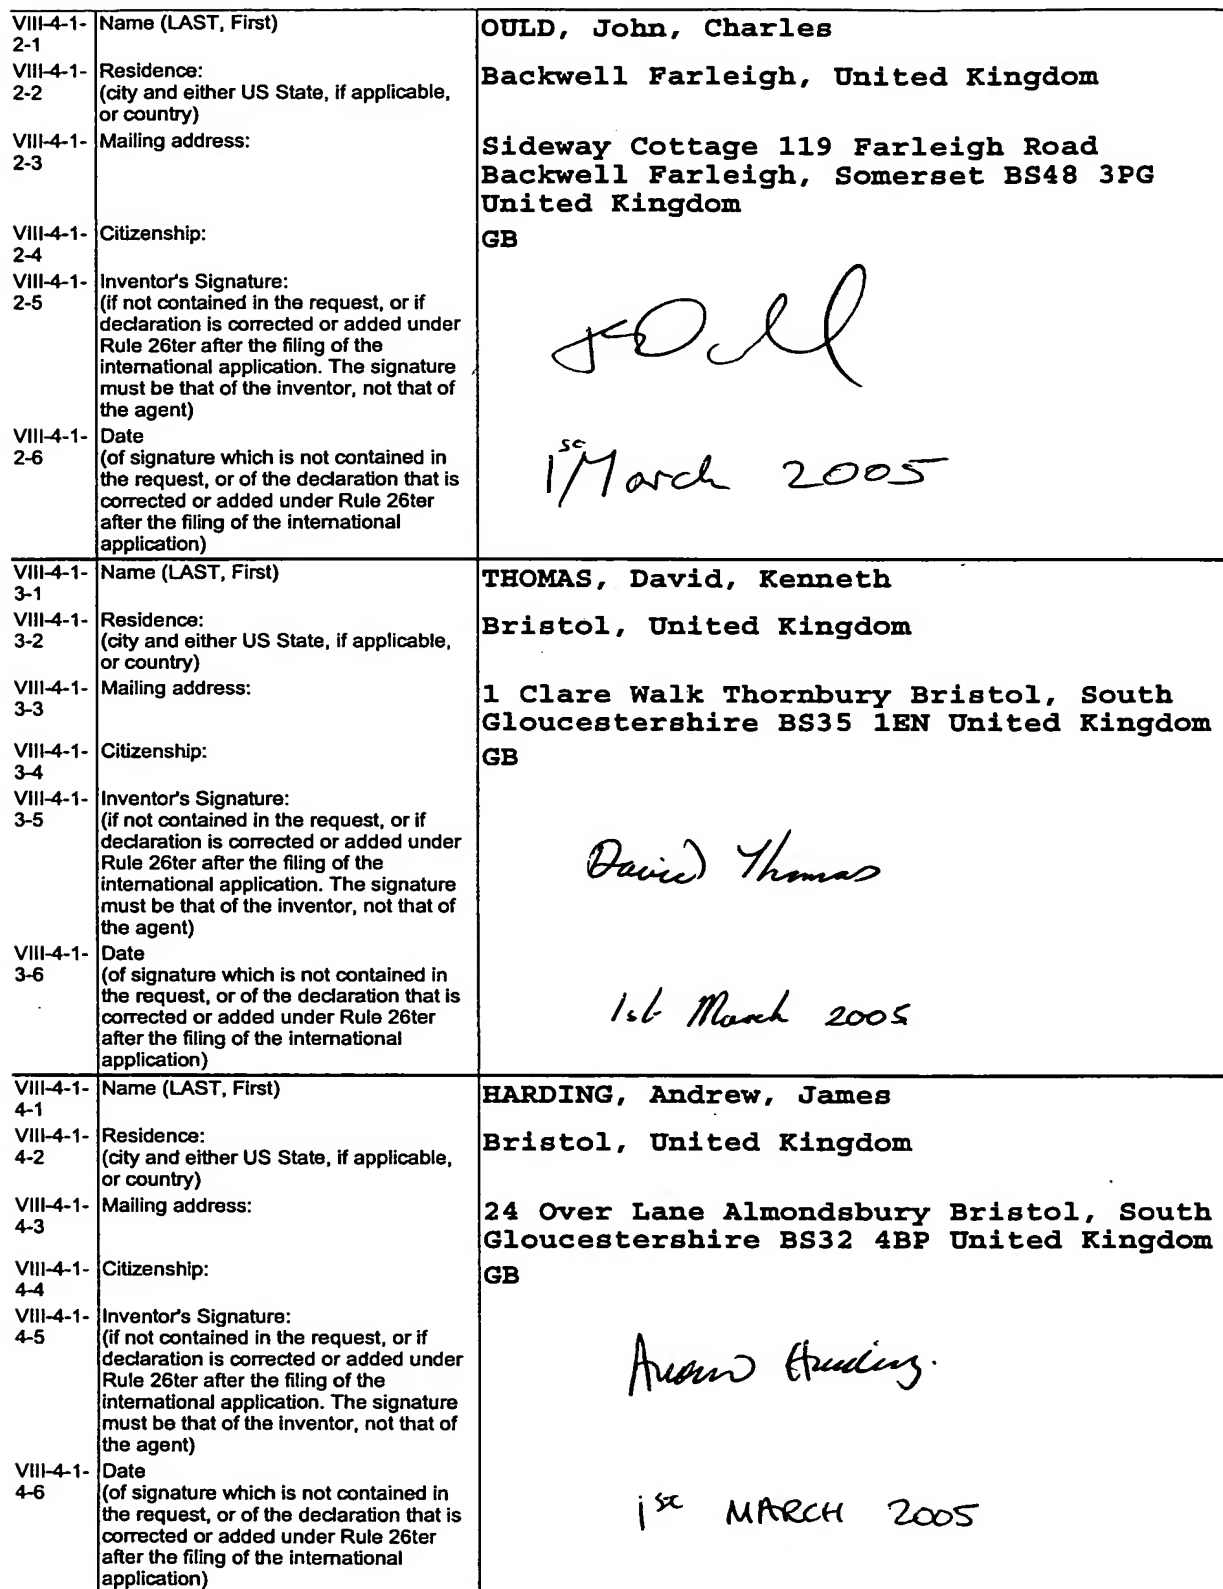 VIII-4-1- Name (LAST, First) OULD, John, Charles
2-1
VIII-4-1- Residence: Backwell Farleigh, United Kingdom
2-2 (city and either US State, if applicable,
or country)
VIII-4-1- Mailing address: Sideway Cottage 119 Farleigh Road
2-3 Backwell Farleigh, Somerset BS48 3PG
United Kingdom
VIII-4-1- Citizenship: GB
2-4
VIII-4-1- Inventor's Signature:
2-5 (if not contained in the request, or if
declaration is corrected or added under
Rule 26ter after the filing of the
international application. The signature
must be that of the inventor, not that of
the agent)
VIII-4-1- Date
2-6 (of signature which is not contained in
the request, or of the declaration that is
corrected or added under Rule 26ter
after the filing of the international
application)
1st March 2005
VIII-4-1- Name (LAST, First) THOMAS, David, Kenneth
3-1
VIII-4-1- Residence: Bristol, United Kingdom
3-2 (city and either US State, if applicable,
or country)
VIII-4-1- Mailing address: 1 Clare Walk Thornbury Bristol, South
3-3 Gloucestershire BS35 1EN United Kingdom
VIII-4-1- Citizenship: GB
3-4
VIII-4-1- Inventor's Signature:
3-5 (if not contained in the request, or if
declaration is corrected or added under
Rule 26ter after the filing of the
international application. The signature
must be that of the inventor, not that of
the agent)
David Thomas
VIII-4-1- Date
3-6 (of signature which is not contained in
the request, or of the declaration that is
corrected or added under Rule 26ter
after the filing of the international
application)
1st March 2005
VIII-4-1- Name (LAST, First) HARDING, Andrew, James
4-1
VIII-4-1- Residence: Bristol, United Kingdom
4-2 (city and either US State, if applicable,
or country)
VIII-4-1- Mailing address: 24 Over Lane Almondsbury Bristol, South
4-3 Gloucestershire BS32 4BP United Kingdom
VIII-4-1- Citizenship: GB
4-4
VIII-4-1- Inventor's Signature:
4-5 (if not contained in the request, or if
declaration is corrected or added under
Rule 26ter after the filing of the
international application. The signature
must be that of the inventor, not that of
the agent)
Andrew Harding.
VIII-4-1- Date
4-6 (of signature which is not contained in
the request, or of the declaration that is
corrected or added under Rule 26ter
after the filing of the international
application)
1st MARCH 2005